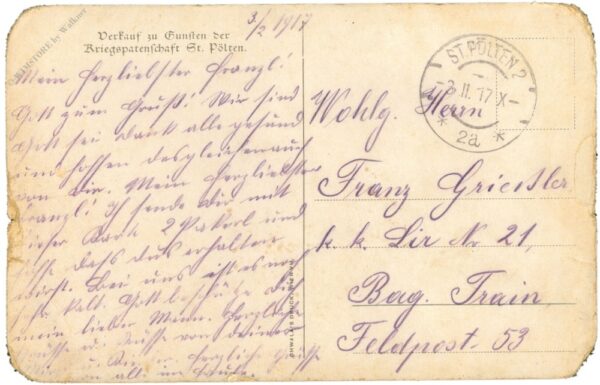 3/2 1917
Verkauf zu Gunsten der
Kriegspatenschaft St. Pölten.
Mein herzliebster Franzl!
Gott zum Gruß! Wir sind
Gott sei Dank alle gesund
und hoffen desgleichen auch
von Dir. Mein herzliebster
Franzl! Ich sende Dir mit
dieser Karte 2 Paketl und
dass du es erhalten
wirst. Bei uns ist es noch
sehr kalt. Gott beschütze Dich
mein lieber Mann. Herzliche
Grüsse von deiner
herzliche Grüsse
von alle im Hause.
ST. PÖLTEN 2
-3.II.17 X-
* 2a *
Wohlg. Herrn
Franz Griessler
k. k. Lir Nr 21,
Bag. Train
Feldpost 53